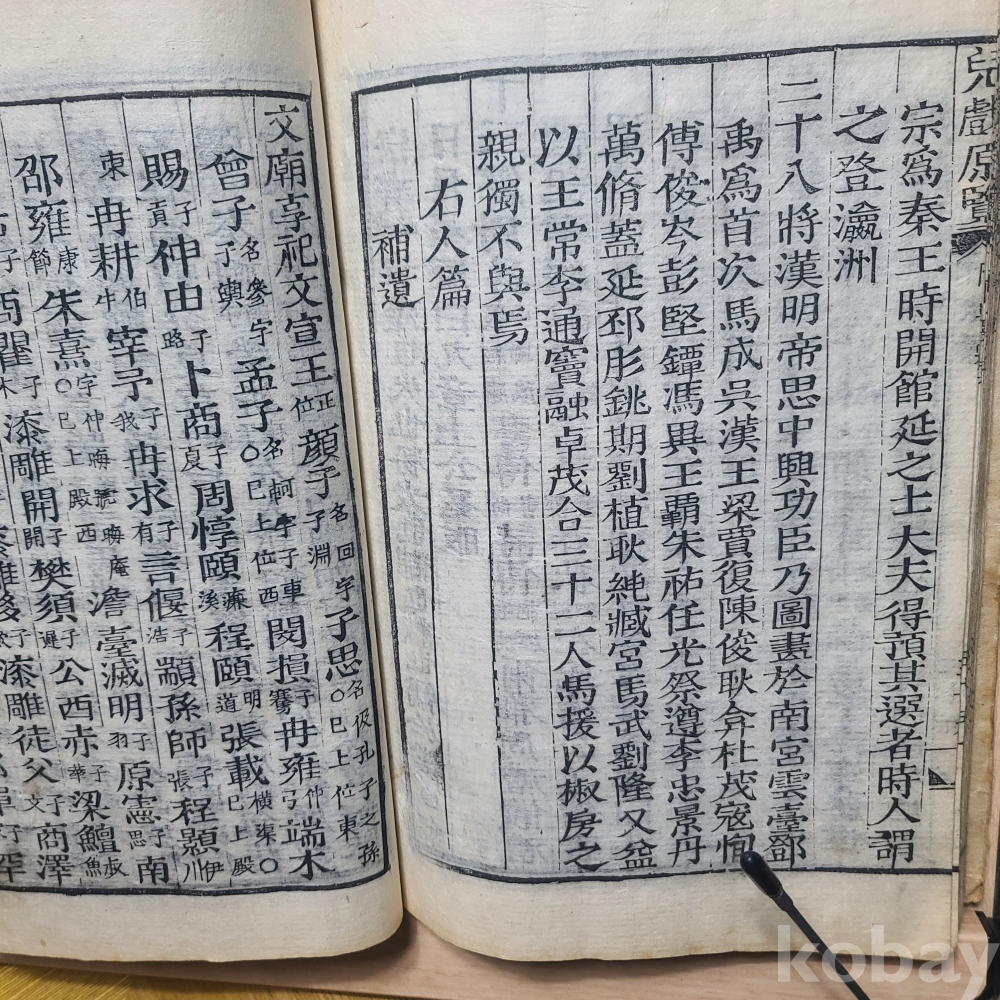 兒戱原覽
宗爲秦王時開館延之士大夫得預其選者時人謂
之登瀛洲
二十八將漢明帝思中興功臣乃圖畫於南宮雲臺鄧
禹爲首次馬成吳漢王梁賈復陳俊耿弇杜茂寇恂
傅俊岑彭堅鐔馮異王霸朱祐任光祭遵李忠景丹
萬脩蓋延邳肜銚期劉植耿純臧宮馬武劉隆又益
以王常李通竇融卓茂合三十二人馬援以椒房之
親獨不與焉
右人篇
補遺
文廟享祀文宣王正位顔子名回字子淵子思名伋孔子之孫○巳上位東
曾子名參字子輿孟子名軻字子車○巳上位西閔損子騫冉雍仲弓端木
賜子貢仲由子路卜商子夏周惇頤濂溪程頤明道張載橫渠○巳上殿
東冉耕伯牛宰予子我冉求子有言偃子浩顓孫師子張程顥伊川
邵雍康節朱熹字仲晦號晦庵○巳上殿西澹臺滅明子羽原憲子思南
商瞿子木漆雕開子開樊須子遲公西赤子華梁鱣叔魚
漆雕徒父子文商澤
kobay